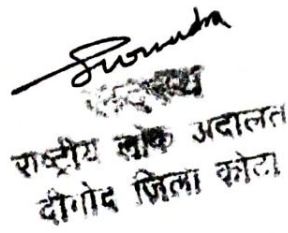 राष्ट्रीय लोक अदालत
दीगोद जिला कोटा